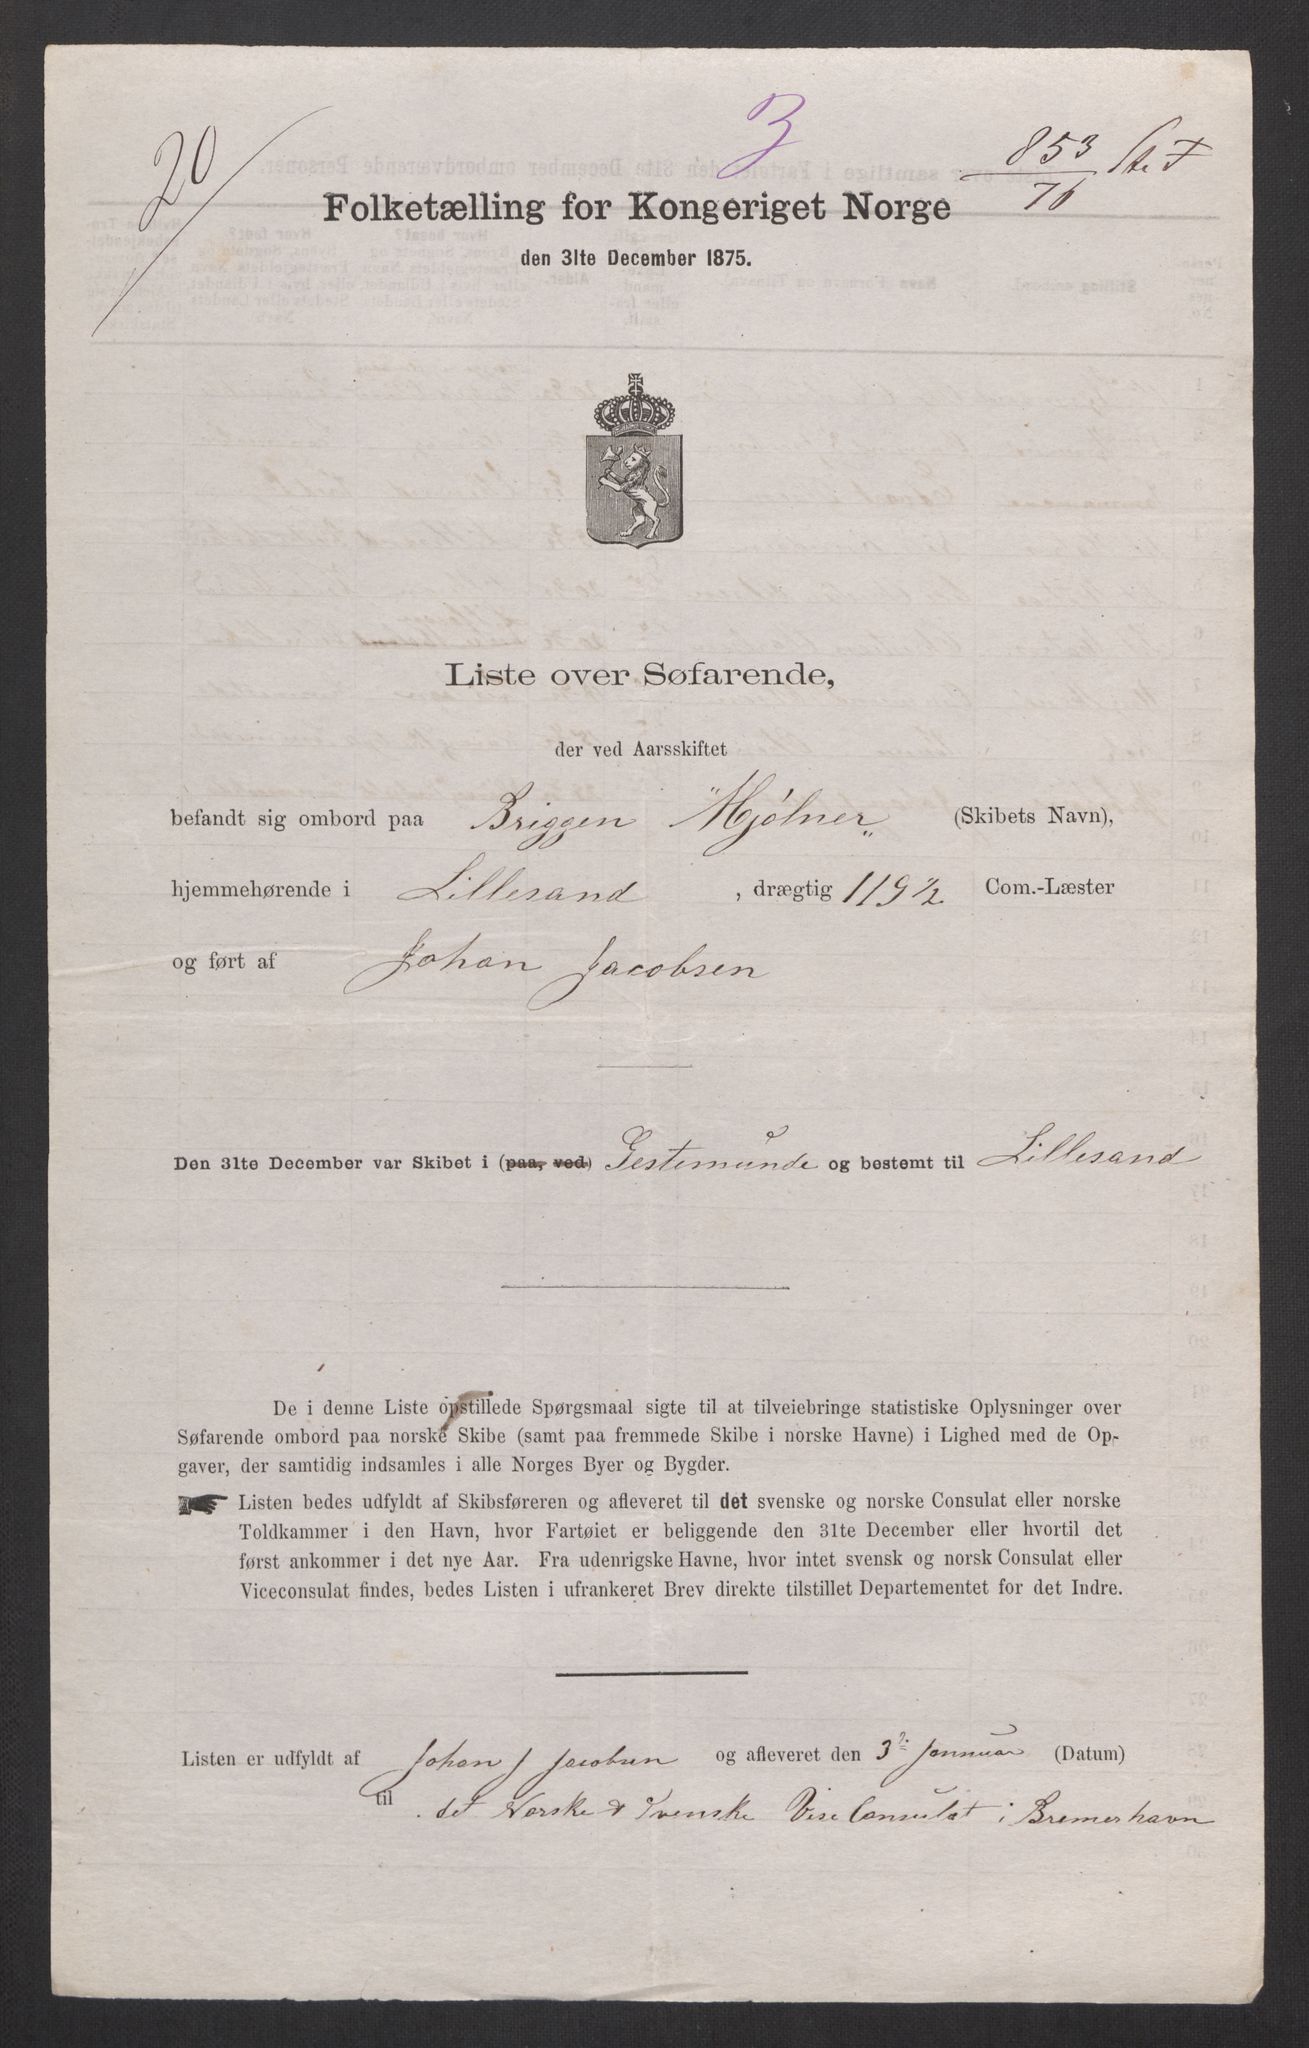 20
3
853 / 76
Folketælling for Kongeriget Norge
den 31te December 1875.
Liste over Søfarende,
der ved Aarsskiftet
befandt sig ombord paa Briggen "Mjølner" (Skibets Navn),
hjemmehørende i Lillesand, drægtig 119½ Com.-Læster
og ført af Johan Jacobsen
Den 31te December var Skibet i (paa, ved) Gestemünde og bestemt til Lillesand
De i denne Liste opstillede Spørgsmaal sigte til at tilveiebringe statistiske Oplysninger over
Søfarende ombord paa norske Skibe (samt paa fremmede Skibe i norske Havne) i Lighed med de Op-
gaver, der samtidig indsamles i alle Norges Byer og Bygder.
Listen bedes udfyldt af Skibsføreren og afleveret til det svenske og norske Consulat eller norske
Toldkammer i den Havn, hvor Fartøiet er beliggende den 31te December eller hvortil det
først ankommer i det nye Aar. Fra udenrigske Havne, hvor intet svensk og norsk Consulat eller
Viceconsulat findes, bedes Listen i ufrankeret Brev direkte tilstillet Departementet for det Indre.
Listen er udfyldt af Johan J Jacobsen og afleveret den 3die Jannuar (Datum)
til det Norske & Svenske Vise Consulat i Bremerhavn